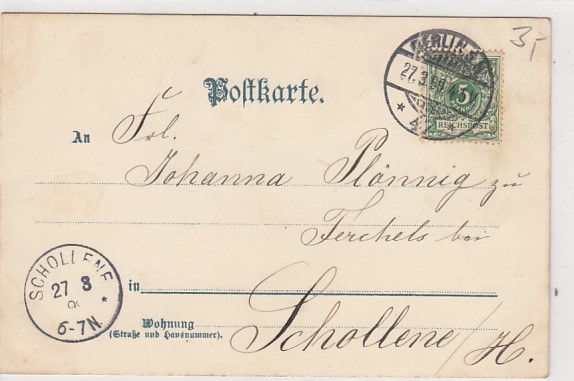 3,-
BERLIN
27.3.
5
REICHSPOST
Postkarte.
An Frl.
Johanna Plönnig zu
Ferchels bei
SCHOLLENE
27 3
6-7N
in
Schollene/H.
Wohnung
(Straße und Hausnummer).